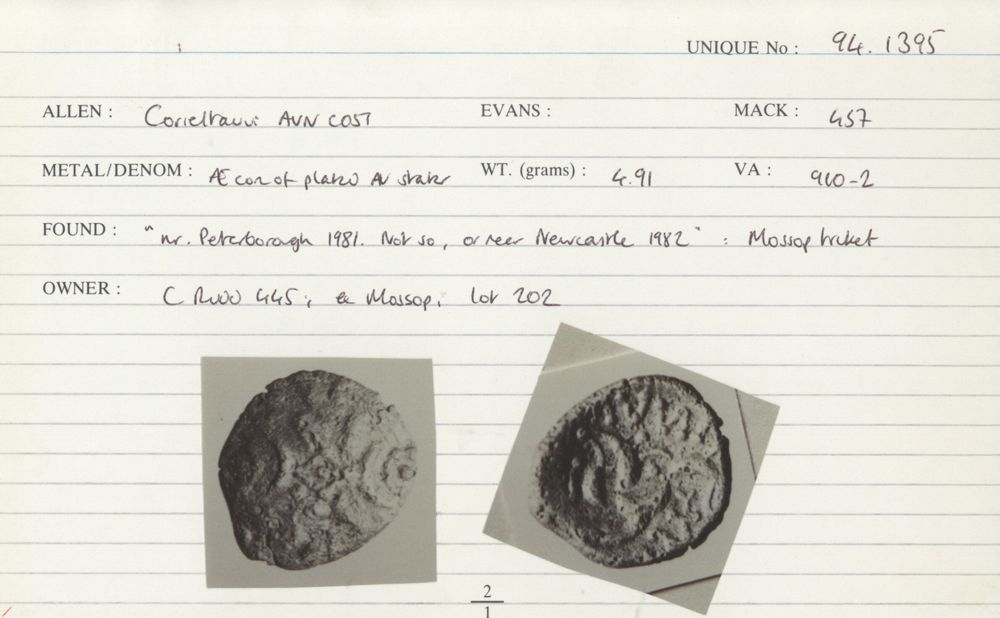 UNIQUE No : 94. 1395
ALLEN : Corieltauvi AVN COST EVANS : MACK : 457
METAL/DENOM : Æ core of plated AV stater WT. (grams) : 4.91 VA : 910-2
FOUND : "nr. Peterborough 1981. Not so, or near Newcastle 1982" : Mossop ticket
OWNER : C RUDD 445; ex Mossop, lot 202
2
1